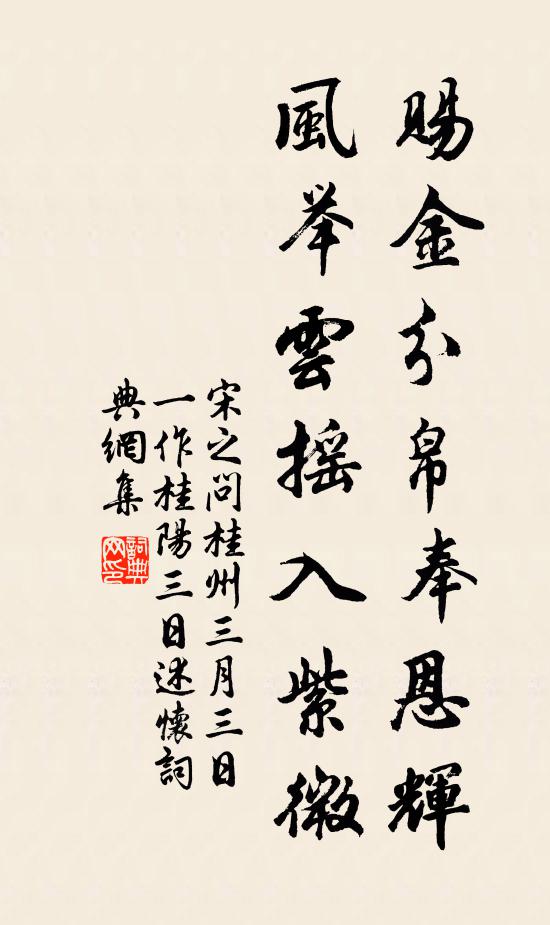 賜金分帛奉恩輝
風举雲摇入紫微
宋之问桂州三月三日
一作桂陽三日述懷詞
典網集
詞典网印